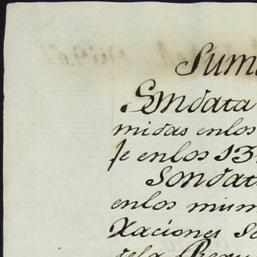 Suma
Son data
midas enlos
fe enlos 13
Son dat
enlos mism
Xaciones Se
dela Requ